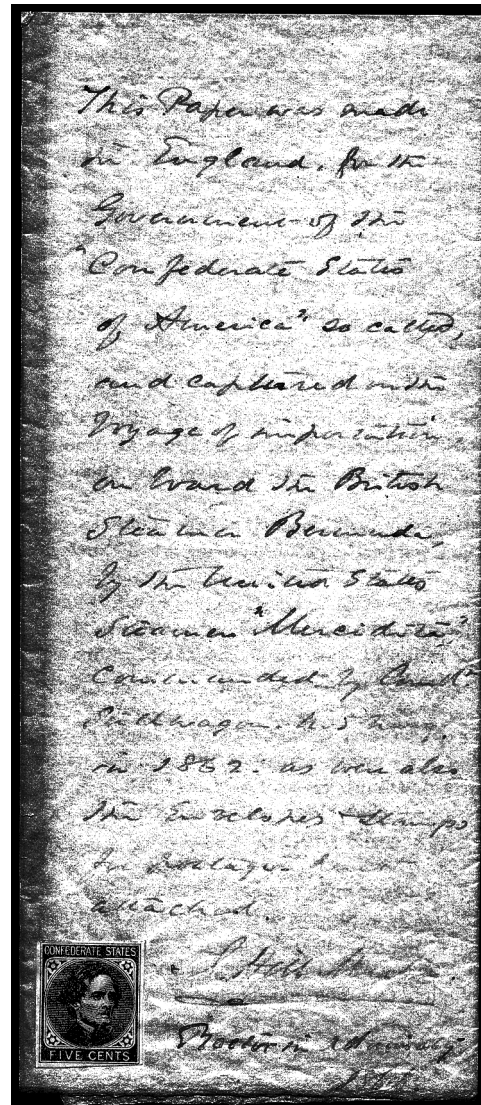 This Paper was made
in England, for the
Government of the
"Confederate States
of America" so called,
and captured on the
Voyage of importation,
on board the British
Steamer Bermuda,
by the United States
Steamer "Mercidita,"
commanded by
U.S. Navy,
in 1862: as were also
the Envelopes & Stamps
for postage
attached.
CONFEDERATE STATES
FIVE CENTS
Boston